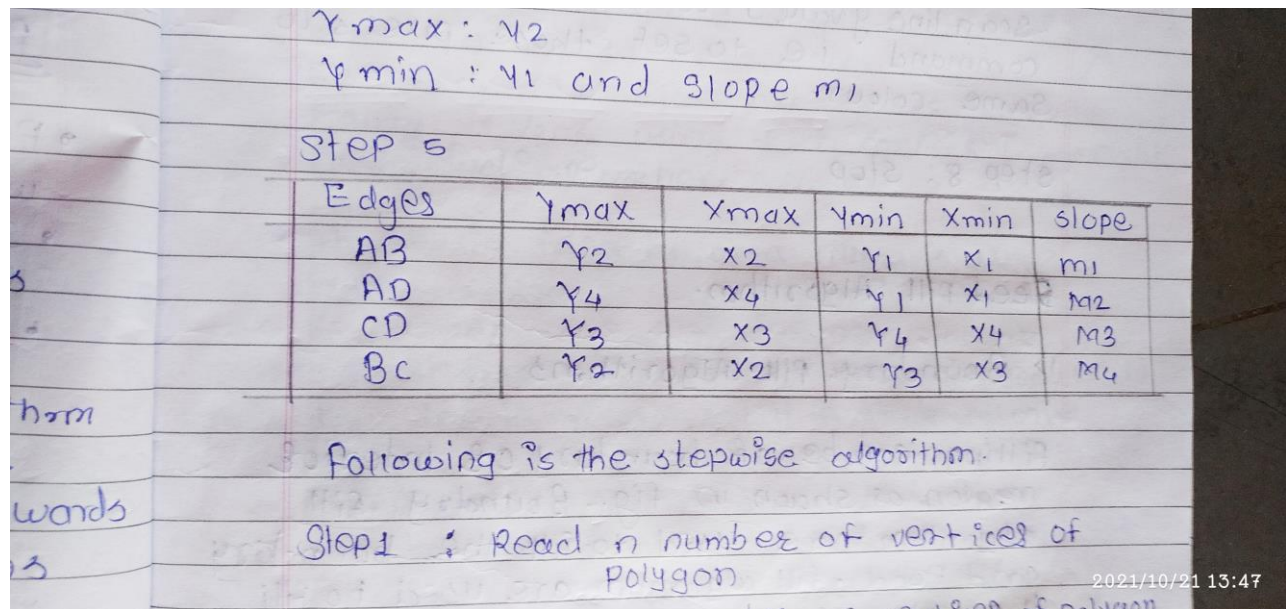 Ymax : Y2
Ymin : Y1 and slope m1
Step 5
Edges Ymax Xmax Ymin Xmin slope
AB Y2 X2 Y1 X1 m1
AD Y4 X4 Y1 X1 M2
CD Y3 X3 Y4 X4 M3
BC Y2 X2 Y3 X3 M4
following is the stepwise algorithm.
Step1 : Read n number of vertices of
polygon
words
2021/10/21 13:47